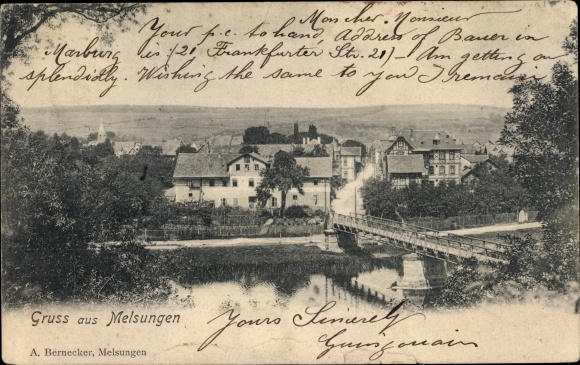 Mon cher Monsieur
Your p.c. to hand, Address of Bauer in
Marburg is :(21 Frankfurter Str. 21) - Am getting on
splendidly. Wishing the same to you I remain
Gruss aus Melsungen
Yours Sincerely
A. Bernecker, Melsungen